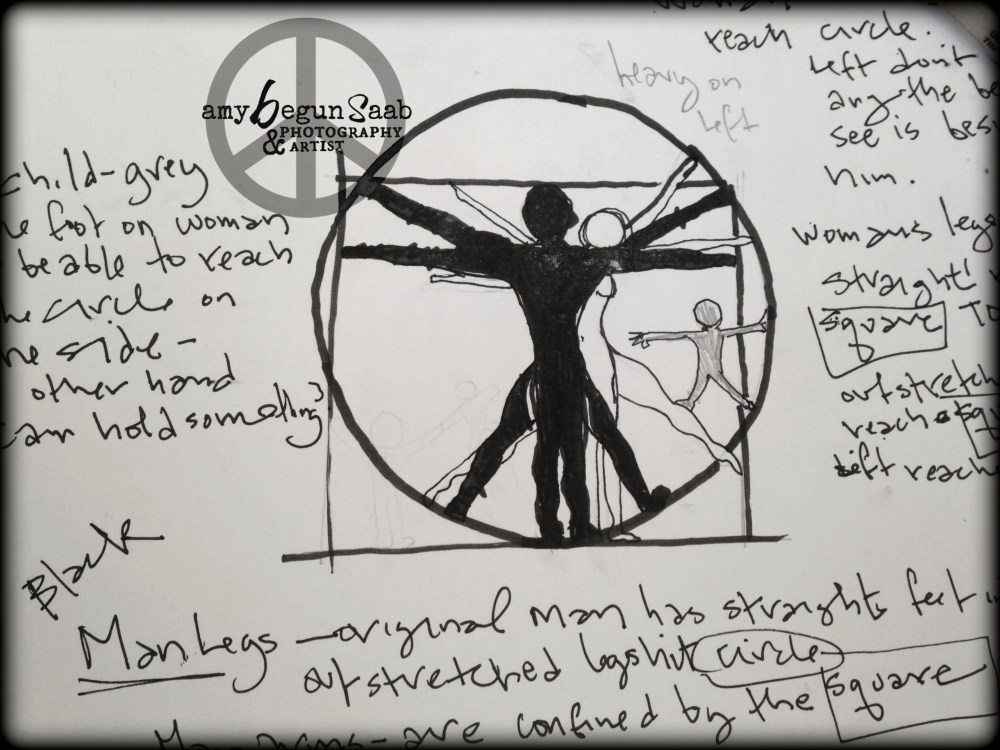 reach circle.
left don't
any the be
see is bes
him.
heavy on
left
amy begun Saab
PHOTOGRAPHY
& ARTIST
child-grey
foot on woman
be able to reach
circle on
side -
other hand
can hold something?
womans legs
straight!
square To
outstretch
reach squ
left reach
Black
Man Legs - original man has straights feet
outstretched legs hit circle
arms - are confined by the square